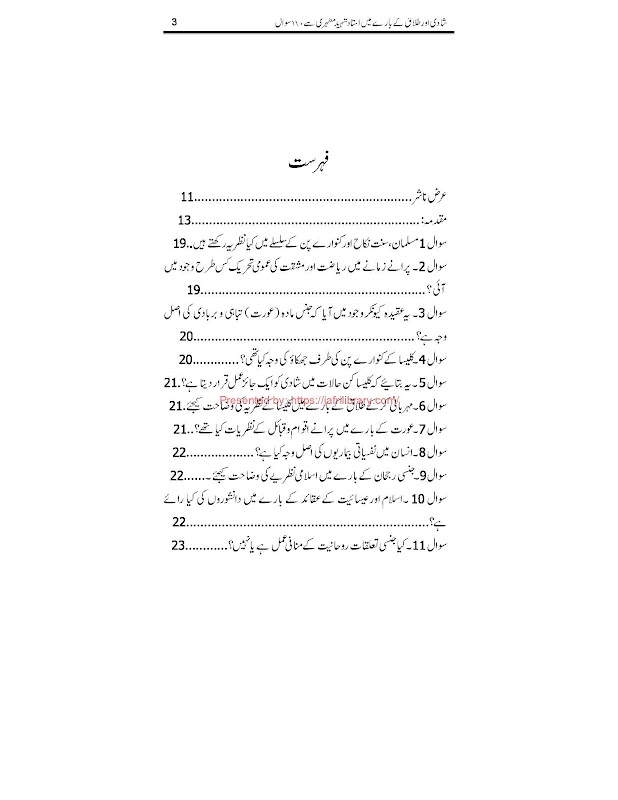 شادی اور طلاق کے بارے میں استاد شہید مطہری سے، ۱۱۰ سوال 3
فہرست
عرض ناشر.............................................................11
مقدمہ:................................................................13
سوال 1 مسلمان، سنت نکاح اور کنوارے پن کے سلسلے میں کیا نظریہ رکھتے ہیں..19
سوال 2۔ پرانے زمانے میں ریاضت اور مشقت کی عمومی تحریک کس طرح وجود میں
آئی؟...............................................................19
سوال 3۔ یہ عقیدہ کیونکر وجود میں آیا کہ جنس مادہ (عورت) تباہی و بربادی کی اصل
وجہ ہے؟..............................................................20
سوال 4۔ کلیسا کے کنوارے پن کی طرف جھکاؤ کی وجہ کیا تھی؟.............20
سوال 5۔ یہ بتایئے کہ کلیسا کن حالات میں شادی کو ایک جائز عمل قرار دیتا ہے؟.21
سوال 6۔ مہربانی کر کے طلاق کے بارے میں کلیسا کے نظریہ کی وضاحت کیجئے.21
Presented by: https://jafrilibrary.com/
سوال 7۔ عورت کے بارے میں پرانے اقوام و قبائل کے نظریات کیا تھے؟..21
سوال 8۔ انسان میں نفسیاتی بیماریوں کی اصل وجہ کیا ہے؟...................22
سوال 9۔ جنسی رجحان کے بارے میں اسلامی نظریے کی وضاحت کیجئے۔......22
سوال 10 ۔ اسلام اور عیسائیت کے عقائد کے بارے میں دانشوروں کی کیا رائے
ہے؟....................................................................22
سوال 11۔ کیا جنسی تعلقات روحانیت کے منافی عمل ہے یا نہیں؟............23